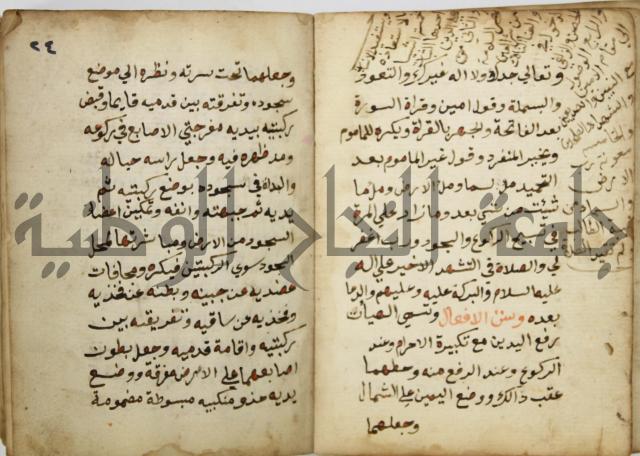 وتعالى جدك ولا اله غيرك والتعوذ
والبسملة وقول امين وقراة السورة
بعد الفاتحة والجهر بالقراة ويكره للماموم
ويخير المنفرد وقول غير الماموم بعد
التحميد مل السما ومل الارض ومل ما
شيئت من شي بعد وما زاد على المرة
في تسبيح الركوع والسجود ورب اغفر
لي والصلاة في التشهد الاخير على اله
عليه السلام والبركة عليه وعليهم والدعا
بعده وسنن الافعال وتسمى الهيات
رفع اليدين مع تكبيرة الاحرام وعند
الركوع وعند الرفع منه وحطهما
عقب ذالك ووضع اليمين على الشمال
وجعلهما
٢٤
وجعلهما تحت سرته ونظره الي موضع
سجوده وتفرقته بين قدميه قايما وقبض
ركبتيه بيديه مفرجتي الاصابع في ركوعه
ومد ظهره فيه وجعل راسه حياله
والبداة في سجوده بوضع ركبتيه ثم
يديه ثم جبهته وانفه وتمكين اعضا
السجود من الارض ومباشرتها لمحل
السجود سوى الركبتين فيكره ومجافات
عضديه عن جنبيه وبطنه عن فخذيه
وفخذيه عن ساقيه وتفريقته بين
ركبتيه واقامة قدميه وجعل بطون
اصابعهما على الارض مفرقة ووضع
يديه حذو منكبيه مبسوطة مضمومة
جامعة النجاح الوطنية